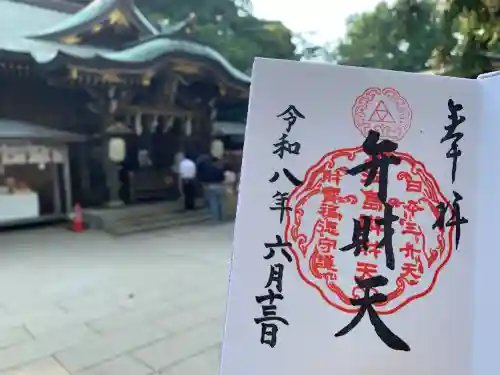 奉拝
弁財天
令和八年六月十三日